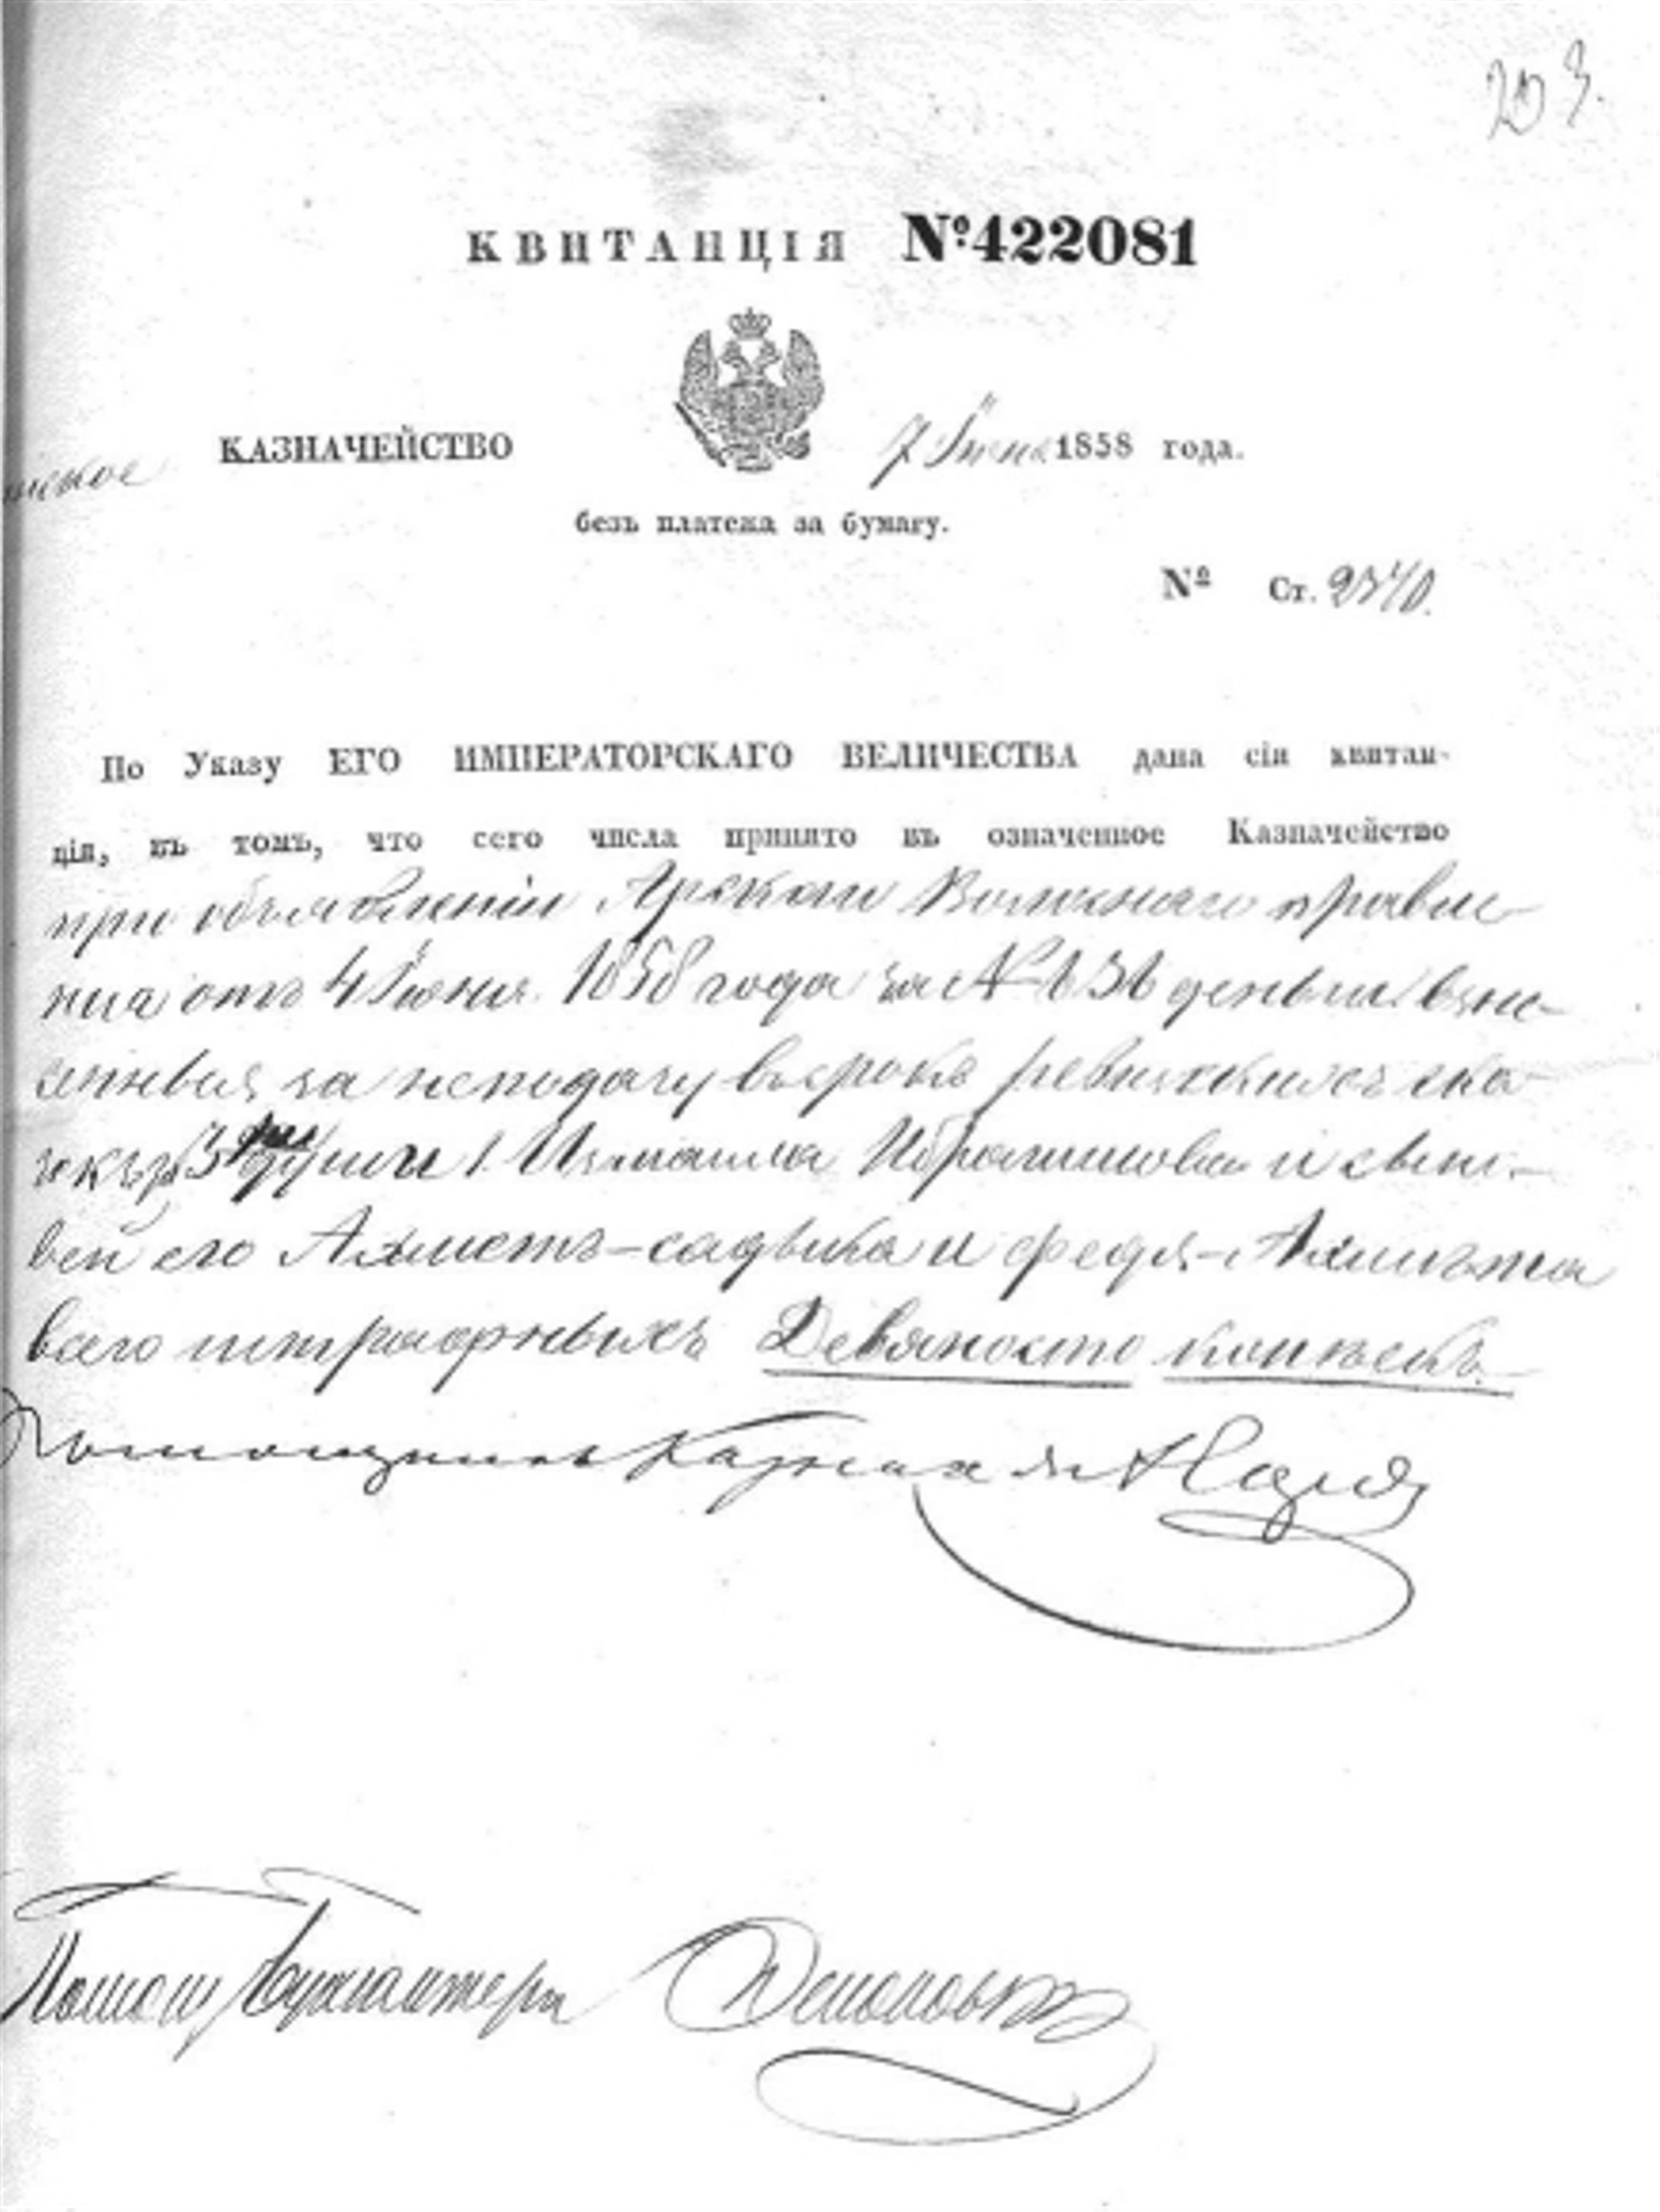 203.
КВИТАНЦІЯ №422081
КАЗНАЧЕЙСТВО 7 Іюня 1858 года.
безъ платежа за бумагу.
№ Ст. 2340.
По Указу ЕГО ИМПЕРАТОРСКАГО ВЕЛИЧЕСТВА дана сія квитан-
ція, въ томъ, что сего числа принято въ означенное Казначейство
при объявленіи Арскаго Волостнаго правле-
нія отъ 4 Іюня 1858 года за № деньги взне-
сенныя за неподачу въ срокъ ревижскихъ ска-
зокъ 3 души 1. Измаила Ибрагимова и сыно-
вей его Ахметъ-садыка и Ахметжа
всего штрафныхъ Девяносто копѣекъ.
Помощникъ Казначея
Помощ Бухгалтера